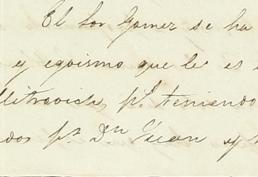 El Sor Gomez se ha
y egoismo que le es
litrovich, pr. teniendo
dos pr. Dn Juan y